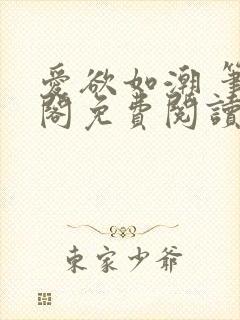 愛欲如潮 筆
閣免費閱讀
東家少爺